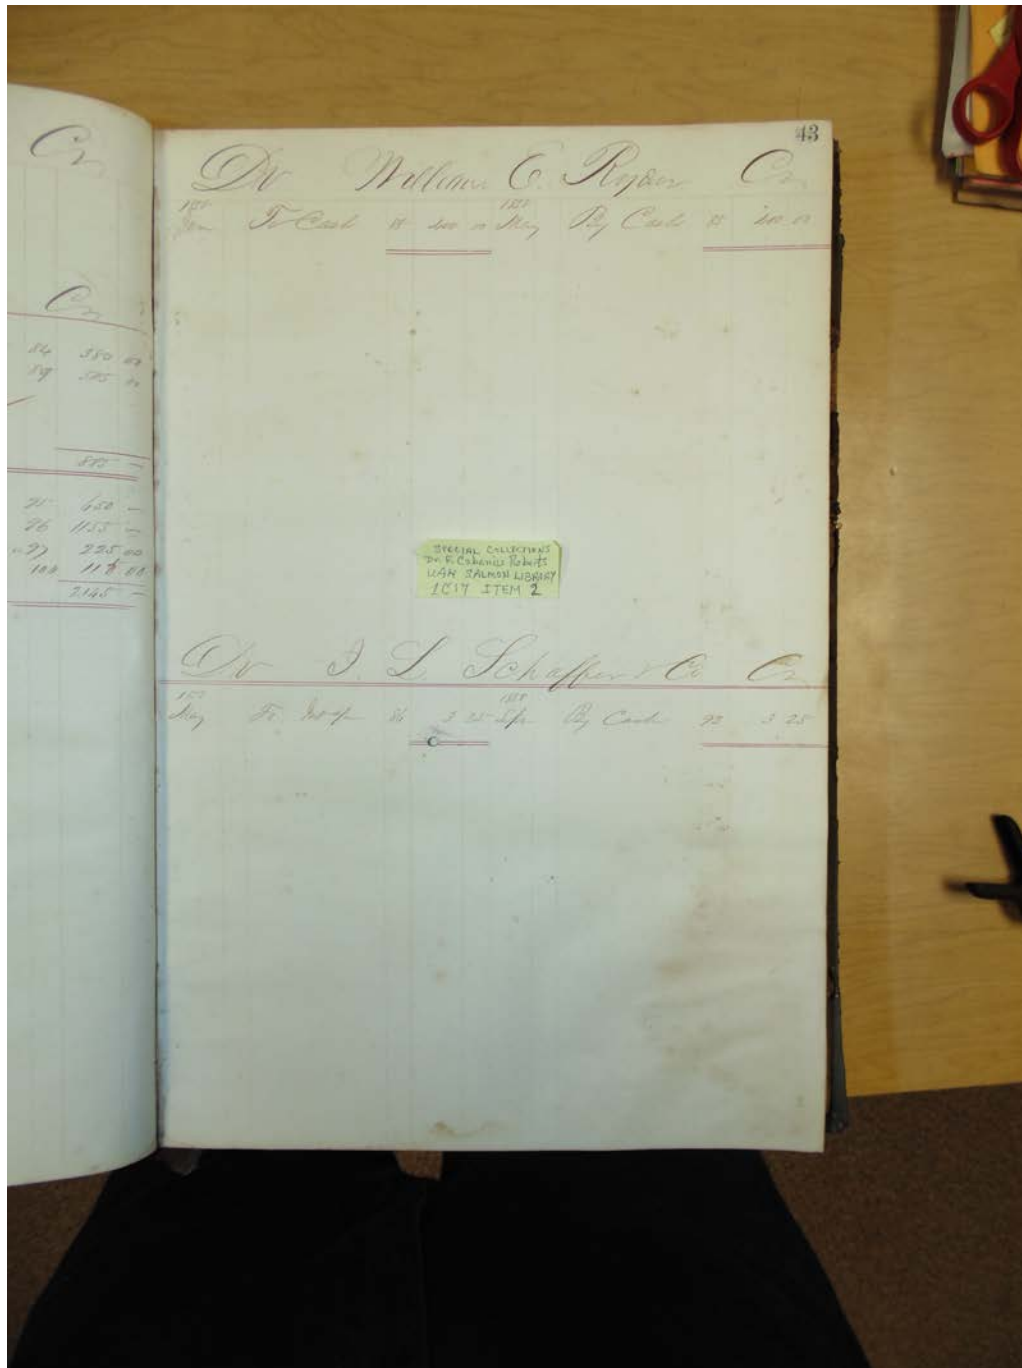 Cr
Cr
84 380 00
89 505 00
885 —
95 650 —
96 1155 —
97 225 00
100 115 00
2145 —
43
Dr William E. Cr
1858 1858
To Cash 85 400 00 May By Cash 85 400 00
SPECIAL COLLECTIONS
Dr. F. Cabaniss Roberts
UAH SALMON LIBRARY
1C17 ITEM 2
Dr I. L. Schaffer & Co Cr
1858
May To 86 3 25 By Cash 92 3 25